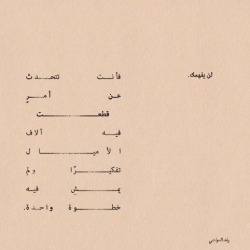 لن يفهمك.
فأنت تتحدث
عن أمرٍ
قطعت
فيه آلاف
الأميال
تفكيرًا ولم
يمشِ فيه
خطوة واحدة.